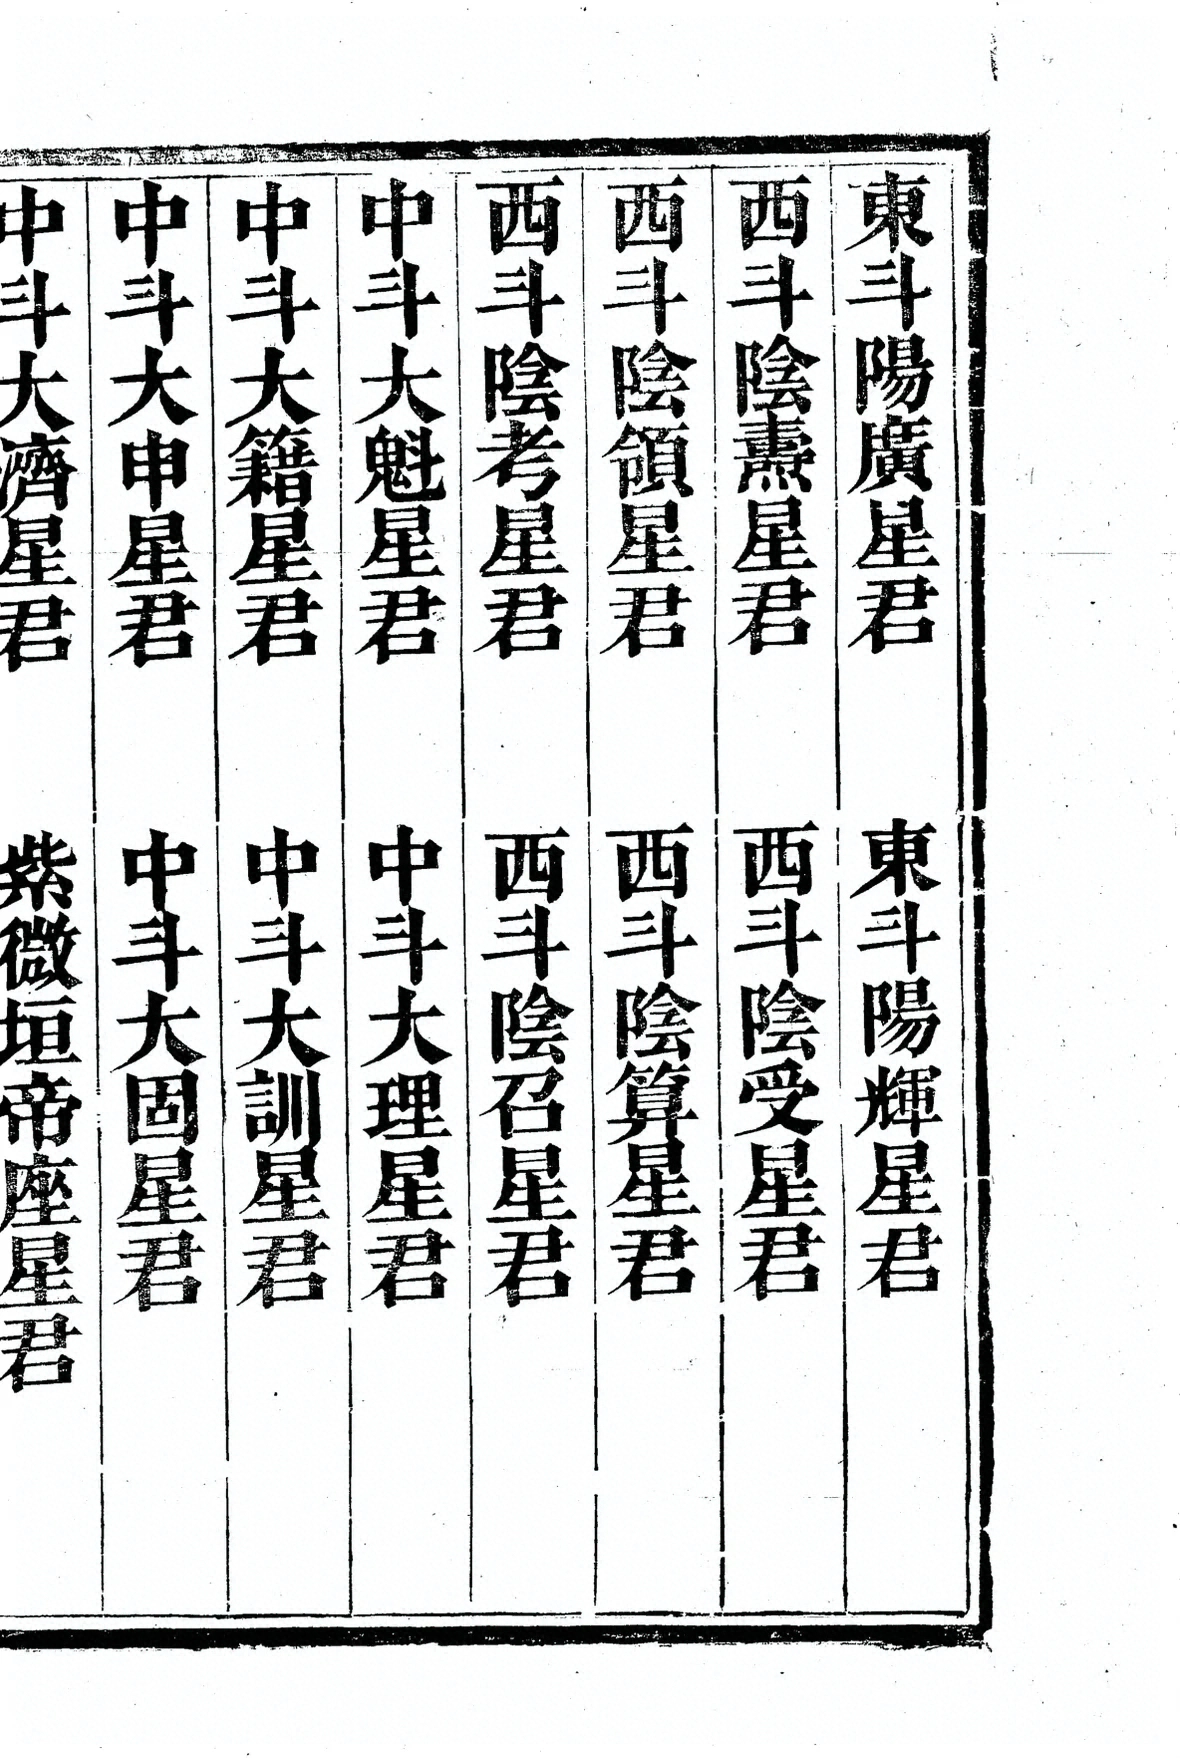 東斗陽廣星君　東斗陽輝星君
西斗陰燾星君　西斗陰受星君
西斗陰領星君　西斗陰算星君
西斗陰考星君　西斗陰召星君
中斗大魁星君　中斗大理星君
中斗大籍星君　中斗大訓星君
中斗大申星君　中斗大固星君
中斗大濟星君　紫微垣帝座星君